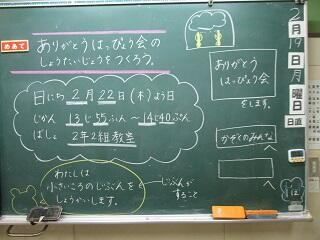 めあて
ありがとうはっぴょう会の
しょうたいじょうをつくろう。
日にち 2月 22日(木)よう日
じかん 13じ55ふん〜14じ40ぷん
ばしょ 2年2組教室
わたしは
小さいころのじぶんを
しょうかいします。
じぶんが
すること
ありがとう
はっぴょう会
をします。
かぞくのみんな
へ
へ
2
月
19
日
月
曜
日
日直